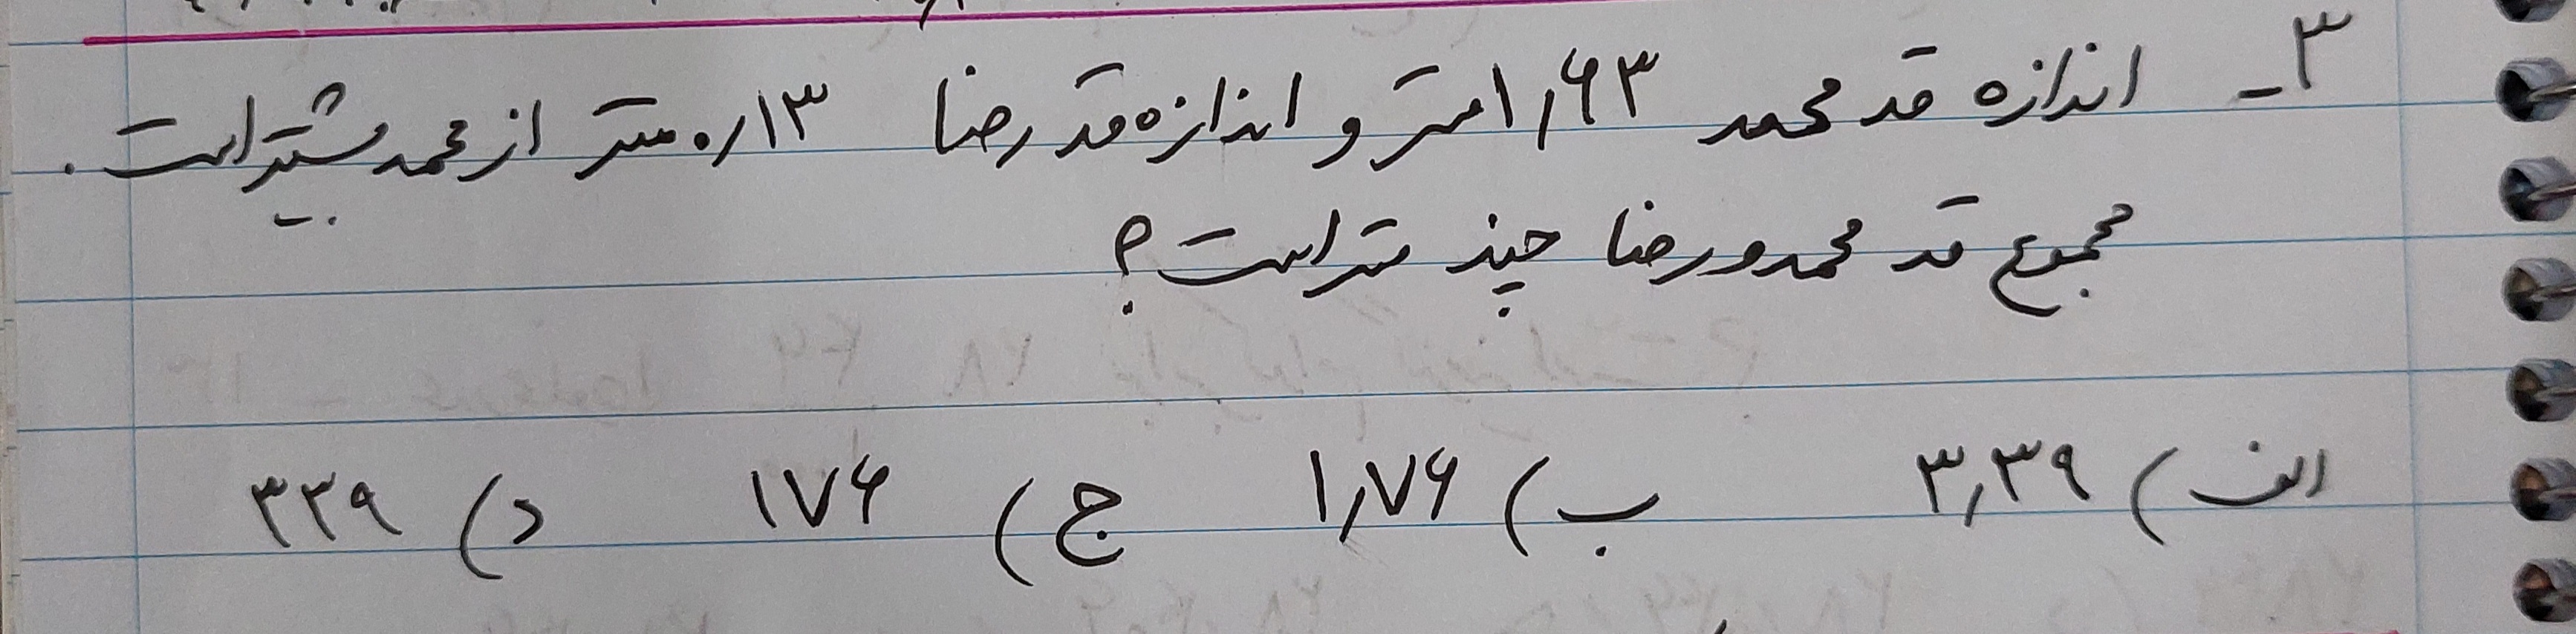 ۳- اندازه قد محمد ۱٫۶۳ متر و اندازه قد رضا ۰٫۱۳ متر از محمد بیشتر است.
مجموع قد محمد و رضا چند متر است؟
الف) ۳٫۳۹ ب) ۱٫۷۶ ج) ۱۷۶ د) ۳۳۹